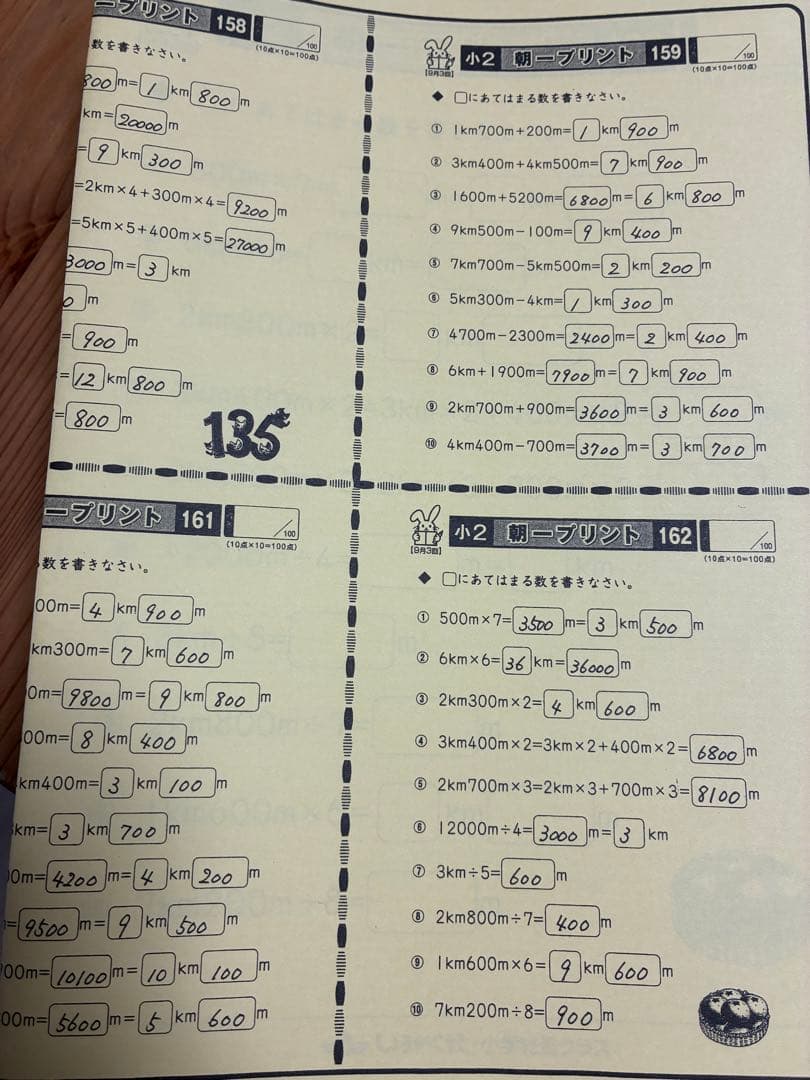 ープリント 158 /100
(10点×10=100点)
数を書きなさい。
800m=1km800m
km=20000m
=9km300m
=2km×4+300m×4=9200m
=5km×5+400m×5=27000m
3000m=3km
0m
=900m
=12km800m
=800m
135
小2 朝一プリント 159 /100
【9月3回】 (10点×10=100点)
◆ □にあてはまる数を書きなさい。
① 1km700m+200m=1km900m
② 3km400m+4km500m=7km900m
③ 1600m+5200m=6800m=6km800m
④ 9km500m-100m=9km400m
⑤ 7km700m-5km500m=2km200m
⑥ 5km300m-4km=1km300m
⑦ 4700m-2300m=2400m=2km400m
⑧ 6km+1900m=7900m=7km900m
⑨ 2km700m+900m=3600m=3km600m
⑩ 4km400m-700m=3700m=3km700m
ープリント 161 /100
(10点×10=100点)
数を書きなさい。
00m=4km900m
km300m=7km600m
0m=9800m=9km800m
00m=8km400m
km400m=3km100m
km=3km700m
00m=4200m=4km200m
=9500m=9km500m
00m=10100m=10km100m
00m=5600m=5km600m
小2 朝一プリント 162 /100
【9月3回】 (10点×10=100点)
◆ □にあてはまる数を書きなさい。
① 500m×7=3500m=3km500m
② 6km×6=36km=36000m
③ 2km300m×2=4km600m
④ 3km400m×2=3km×2+400m×2=6800m
⑤ 2km700m×3=2km×3+700m×3=8100m
⑥ 12000m÷4=3000m=3km
⑦ 3km÷5=600m
⑧ 2km800m÷7=400m
⑨ 1km600m×6=9km600m
⑩ 7km200m÷8=900m